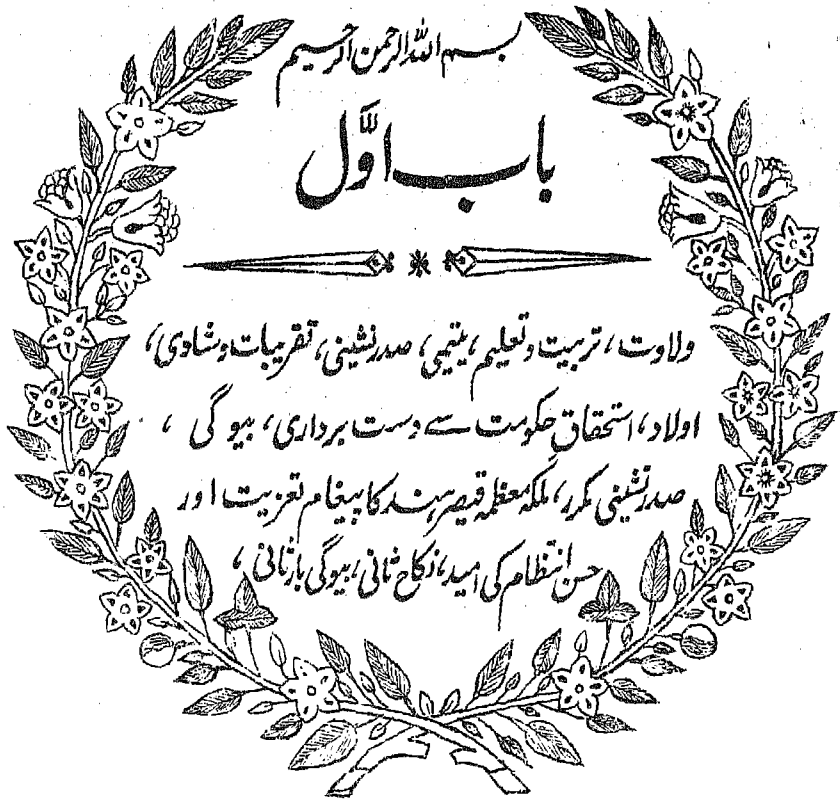 بسم اللہ الرحمن الرحیم
باب اوّل
ولادت، تربیت وتعلیم، یتیمی، صدرنشینی، تقریبات وشادی،
اولاد، استحقاق حکومت سے دست برداری، بیوگی،
صدرنشینی مکرر، ملکہ معظمہ قیصر ہند کا پیغام تعزیت اور
حسن انتظام کی امید، نکاح ثانی، بیوگی بارثانی،